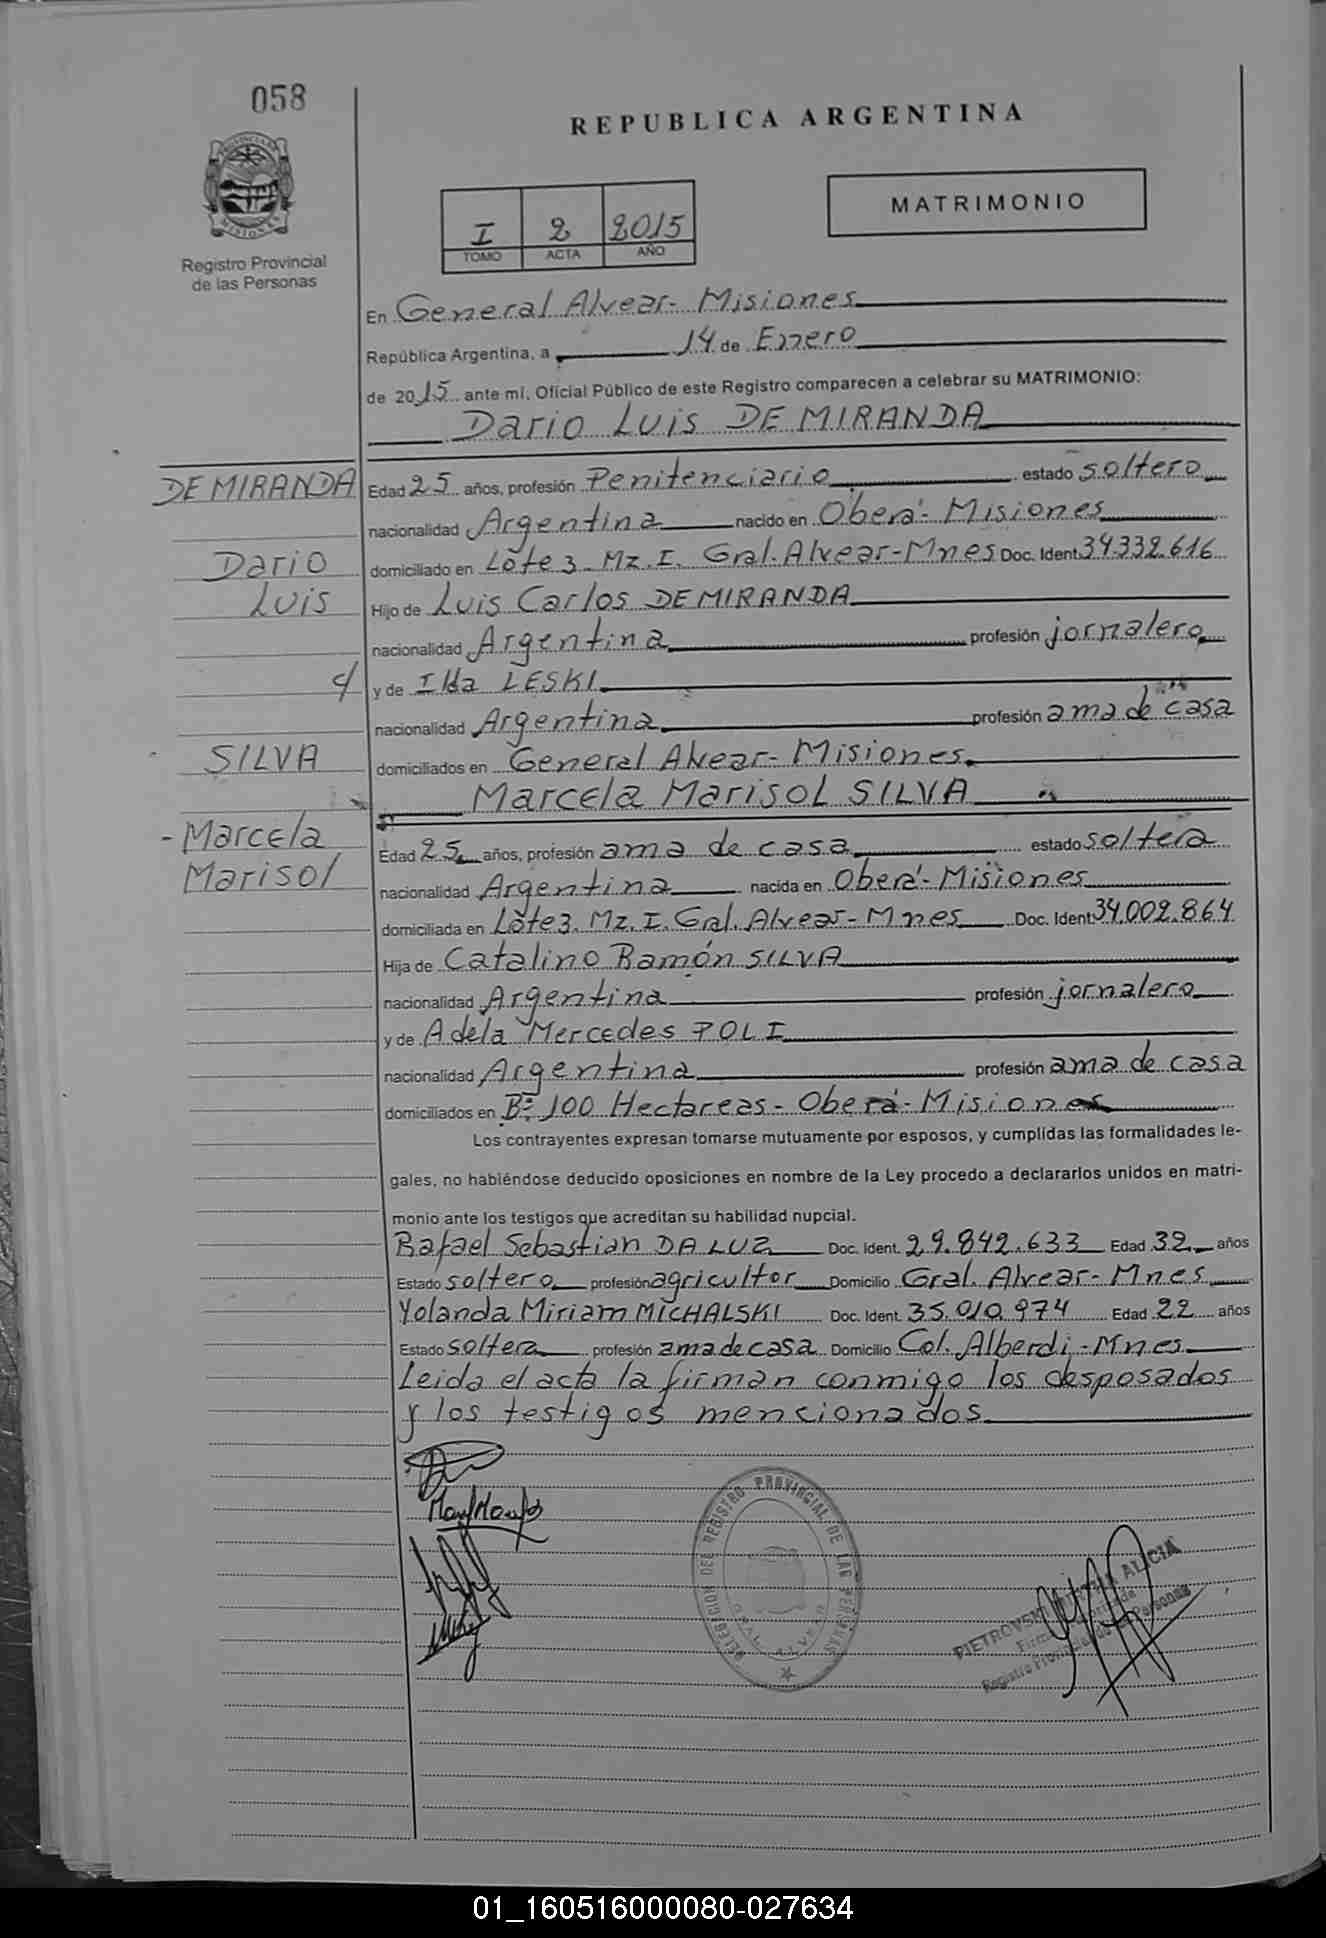 058
REPUBLICA ARGENTINA
PROVINCIA DE
MISIONES
Registro Provincial
de las Personas
I 2 2015
TOMO ACTA AÑO
MATRIMONIO
En General Alvear- Misiones
República Argentina, a 14 de Enero
de 2015 ante mí, Oficial Público de este Registro comparecen a celebrar su MATRIMONIO:
Dario Luis DE MIRANDA
DE MIRANDA
Dario
Luis
c/
SILVA
- Marcela
Marisol
Edad 25 años, profesión Penitenciario estado soltero
nacionalidad Argentina nacido en Oberá- Misiones
domiciliado en Lote 3- Mz. I. Gral. Alvear-Mnes Doc. Ident. 34.332.616
Hijo de Luis Carlos DE MIRANDA
nacionalidad Argentina profesión jornalero
y de Ilda LESKI
nacionalidad Argentina profesión ama de casa
domiciliados en General Alvear- Misiones.
Marcela Marisol SILVA
Edad 25 años, profesión ama de casa estado soltera
nacionalidad Argentina nacida en Oberá- Misiones
domiciliada en Lote 3. Mz. I. Gral. Alvear- Mnes Doc. Ident. 34.002.864
Hija de Catalino Ramón SILVA
nacionalidad Argentina profesión jornalero
y de Adela Mercedes POLI
nacionalidad Argentina profesión ama de casa
domiciliados en Bº 100 Hectareas- Oberá- Misiones
Los contrayentes expresan tomarse mutuamente por esposos, y cumplidas las formalidades le-
gales, no habiéndose deducido oposiciones en nombre de la Ley procedo a declararlos unidos en matri-
monio ante los testigos que acreditan su habilidad nupcial.
Rafael Sebastian DA LUZ Doc. Ident. 29.842.633 Edad 32 años
Estado soltero profesión agricultor Domicilio Gral. Alvear- Mnes
Yolanda Miriam MICHALSKI Doc. Ident. 35.010.974 Edad 22 años
Estado soltera profesión ama de casa Domicilio Col. Alberdi - Mnes
Leida el acta la firman conmigo los desposados
y los testigos mencionados
DELEGACION DEL REGISTRO PROVINCIAL DE LAS PERSONAS
GRAL. ALVEAR
PIETROVSKI ALICIA
Registro Provincial de las Personas
01_160516000080-027634